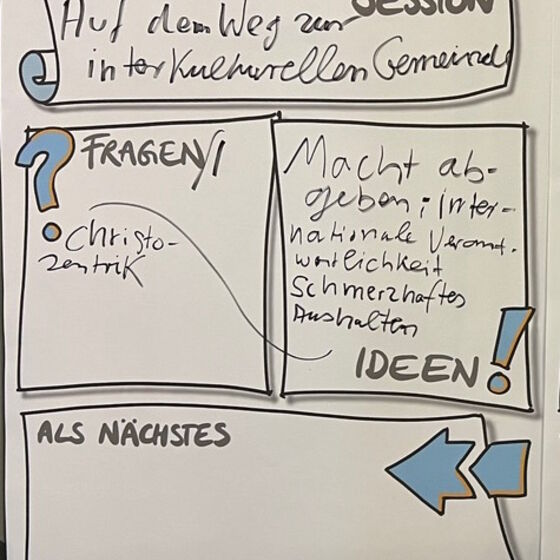 SESSION
Auf dem Weg zur
interkulturellen Gemeinde
FRAGEN/
Christo-
zentrik
Macht ab-
geben; inter-
nationale Verant.
wortlichkeit
Schmerzhaftes
Aushalten
IDEEN!
ALS NÄCHSTES